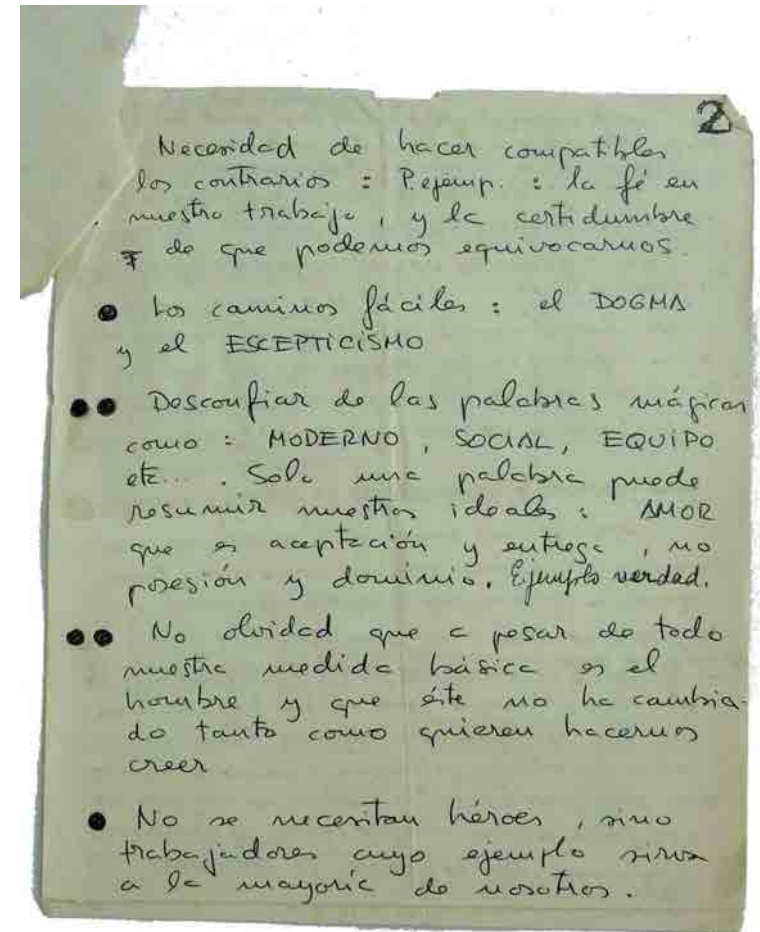 2
Necesidad de hacer compatibles
los contrarios : P.ejemp. : la fé en
nuestro trabajo, y la certidumbre
de que podemos equivocarnos.
● Los caminos fáciles : el DOGMA
y el ESCEPTICISMO
●● Desconfiar de las palabras mágicas
como : MODERNO, SOCIAL, EQUIPO
etc... . Solo una palabra puede
resumir nuestros ideales : AMOR
que es aceptación y entrega, no
posesión y dominio. Ejemplo verdad.
●● No olvidad que a pesar de todo
nuestra medida básica es el
hombre y que éste no ha cambia-
do tanto como quieren hacernos
creer
● No se necesitan héroes, sino
trabajadores cuyo ejemplo sirva
a la mayoría de nosotros.